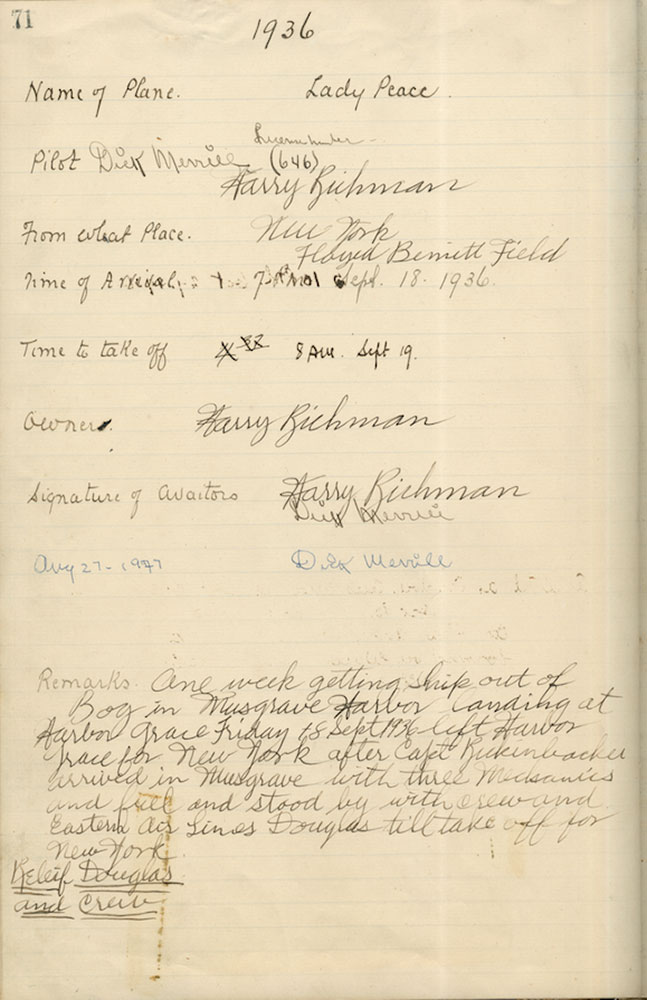 71
1936
Name of Plane. Lady Peace.
Pilot Dick Merrill (646)
Harry Richman
From what Place. New York
Floyd Bennett Field
Time of Arrival, Sept. 18. 1936.
Time to take off 8 AM. Sept 19.
Owner. Harry Richman
Signature of Avaitors Harry Richman
Dick Merrill
Aug 27-1947 Dick Merrill
Remarks. One week getting ship out of
Bog in Musgrave Harbor landing at
Harbor Grace Friday 18 Sept 1936 left Harbor
Grace for New York after Capt Rickenbacker
arrived in Musgrave with three Mechanics
and fuel and stood by with crew and
Eastern Air Lines Douglas till take off for
New York
Releif Douglas
and Crew